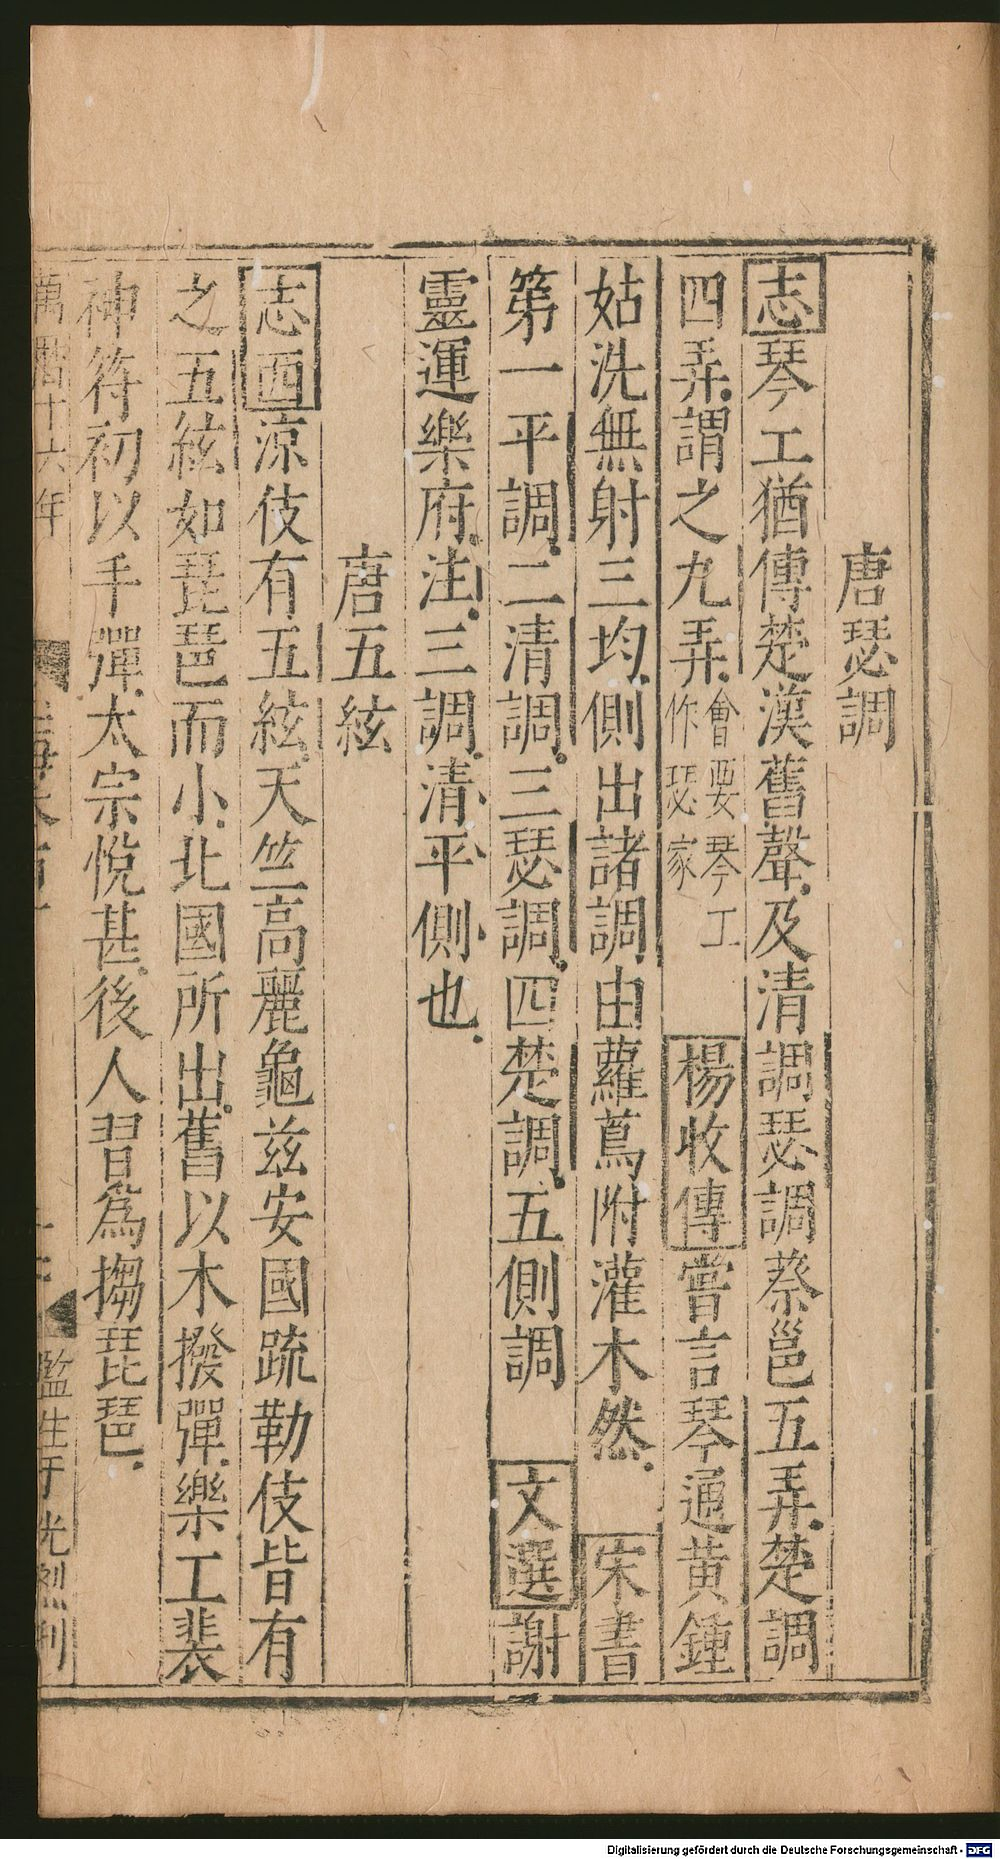 唐瑟調
志琴工猶傳楚漢舊聲及清調瑟調蔡邕五弄楚調
四弄謂之九弄會要琴工作瑟家楊收傳嘗言琴通黃鍾
姑洗無射三均側出諸調由蘿蔦附灌木然宋書
第一平調二清調三瑟調四楚調五側調文選謝
靈運樂府注三調清平側也
唐五絃
志西涼伎有五絃天竺高麗龜兹安國疏勒伎皆有
之五絃如琵琶而小北國所出舊以木撥彈樂工裴
神符初以手彈太宗悅甚後人習爲搊琵琶
萬曆十六年 監生于光烈刊
Digitalisierung gefördert durch die Deutsche Forschungsgemeinschaft - DFG